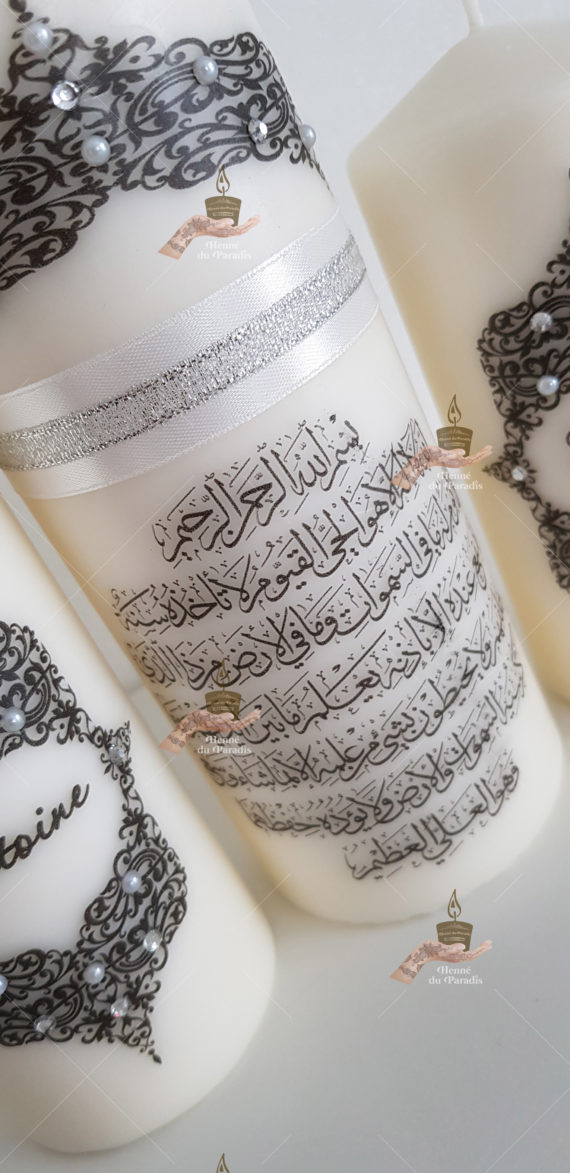 بسم الله الرحمن الرحيم
لا هو الحي القيوم لا تأخذه سنة
ما في السموات وما في الأرض من ذا الذي
عنده إلا بإذنه يعلم ما بين
ولا يحيطون بشيء من علمه إلا بما شاء
السموات والأرض ولا يوده حفظهما
وهو العلي العظيم
toine
Henné
du Paradis
Henné
du Paradis
Henné
du Paradis
Henné
du Paradis